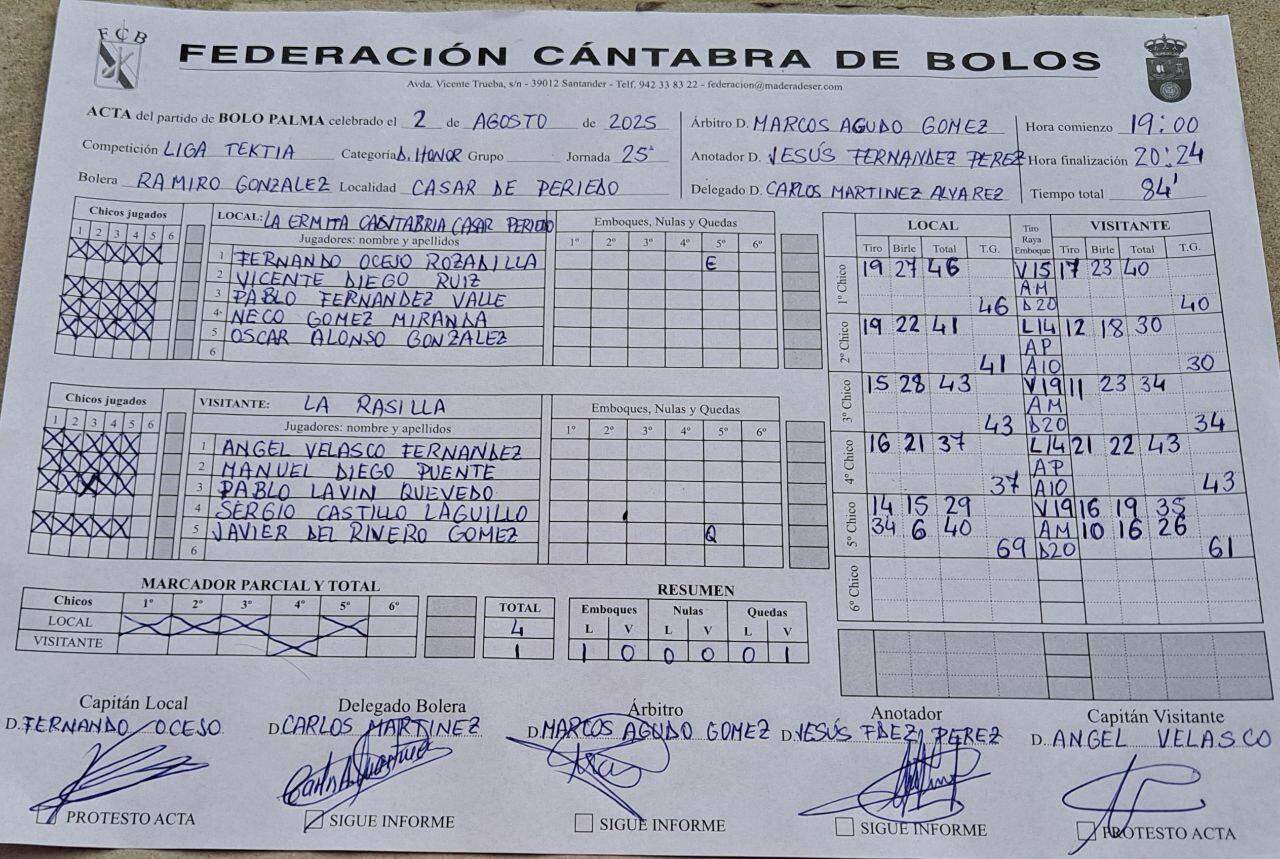 FCB
FEDERACIÓN CÁNTABRA DE BOLOS
Avda. Vicente Trueba, s/n - 39012 Santander - Telf. 942 33 83 22 - federacion@maderadeser.com
ACTA del partido de BOLO PALMA celebrado el 2 de AGOSTO de 2025
Competición LIGA TEKTIA Categoría D. HONOR Grupo Jornada 25ª
Bolera RAMIRO GONZALEZ Localidad CASAR DE PERIEDO
Árbitro D. MARCOS AGUDO GOMEZ
Anotador D. JESÚS FERNANDEZ PEREZ
Delegado D. CARLOS MARTINEZ ALVAREZ
Hora comienzo 19:00
Hora finalización 20:24
Tiempo total 84'
Chicos jugados
1 2 3 4 5 6
LOCAL: LA ERMITA CANTABRIA CASAR PERIEDO
Jugadores: nombre y apellidos
Emboques, Nulas y Quedas
1º 2º 3º 4º 5º 6º
1 FERNANDO OCEJO ROZADILLA E
2 VICENTE DIEGO RUIZ
3 PABLO FERNANDEZ VALLE
4 NECO GOMEZ MIRANDA
5 OSCAR ALONSO GONZALEZ
6
Chicos jugados
1 2 3 4 5 6
VISITANTE: LA RASILLA
Jugadores: nombre y apellidos
Emboques, Nulas y Quedas
1º 2º 3º 4º 5º 6º
1 ANGEL VELASCO FERNANDEZ
2 MANUEL DIEGO PUENTE
3 PABLO LAVIN QUEVEDO
4 SERGIO CASTILLO LAGUILLO
5 JAVIER DEL RIVERO GOMEZ Q
6
LOCAL Tiro Raya Emboque VISITANTE
Tiro Birle Total T.G. Tiro Birle Total T.G.
1º Chico 19 27 46 V15 17 23 40
AM
46 D20 40
2º Chico 19 22 41 L14 12 18 30
AP
41 A10 30
3º Chico 15 28 43 V19 11 23 34
AM
43 D20 34
4º Chico 16 21 37 L14 21 22 43
AP
37 A10 43
5º Chico 14 15 29 V19 16 19 35
34 6 40 AM 10 16 26
69 D20 61
6º Chico
MARCADOR PARCIAL Y TOTAL
Chicos 1º 2º 3º 4º 5º 6º TOTAL
LOCAL 4
VISITANTE 1
RESUMEN
Emboques Nulas Quedas
L V L V L V
1 0 0 0 0 1
Capitán Local
D. FERNANDO OCEJO
PROTESTO ACTA
Delegado Bolera
D. CARLOS MARTINEZ
SIGUE INFORME
Árbitro
D. MARCOS AGUDO GOMEZ
SIGUE INFORME
Anotador
D. JESÚS FDEZ PEREZ
SIGUE INFORME
Capitán Visitante
D. ANGEL VELASCO
PROTESTO ACTA